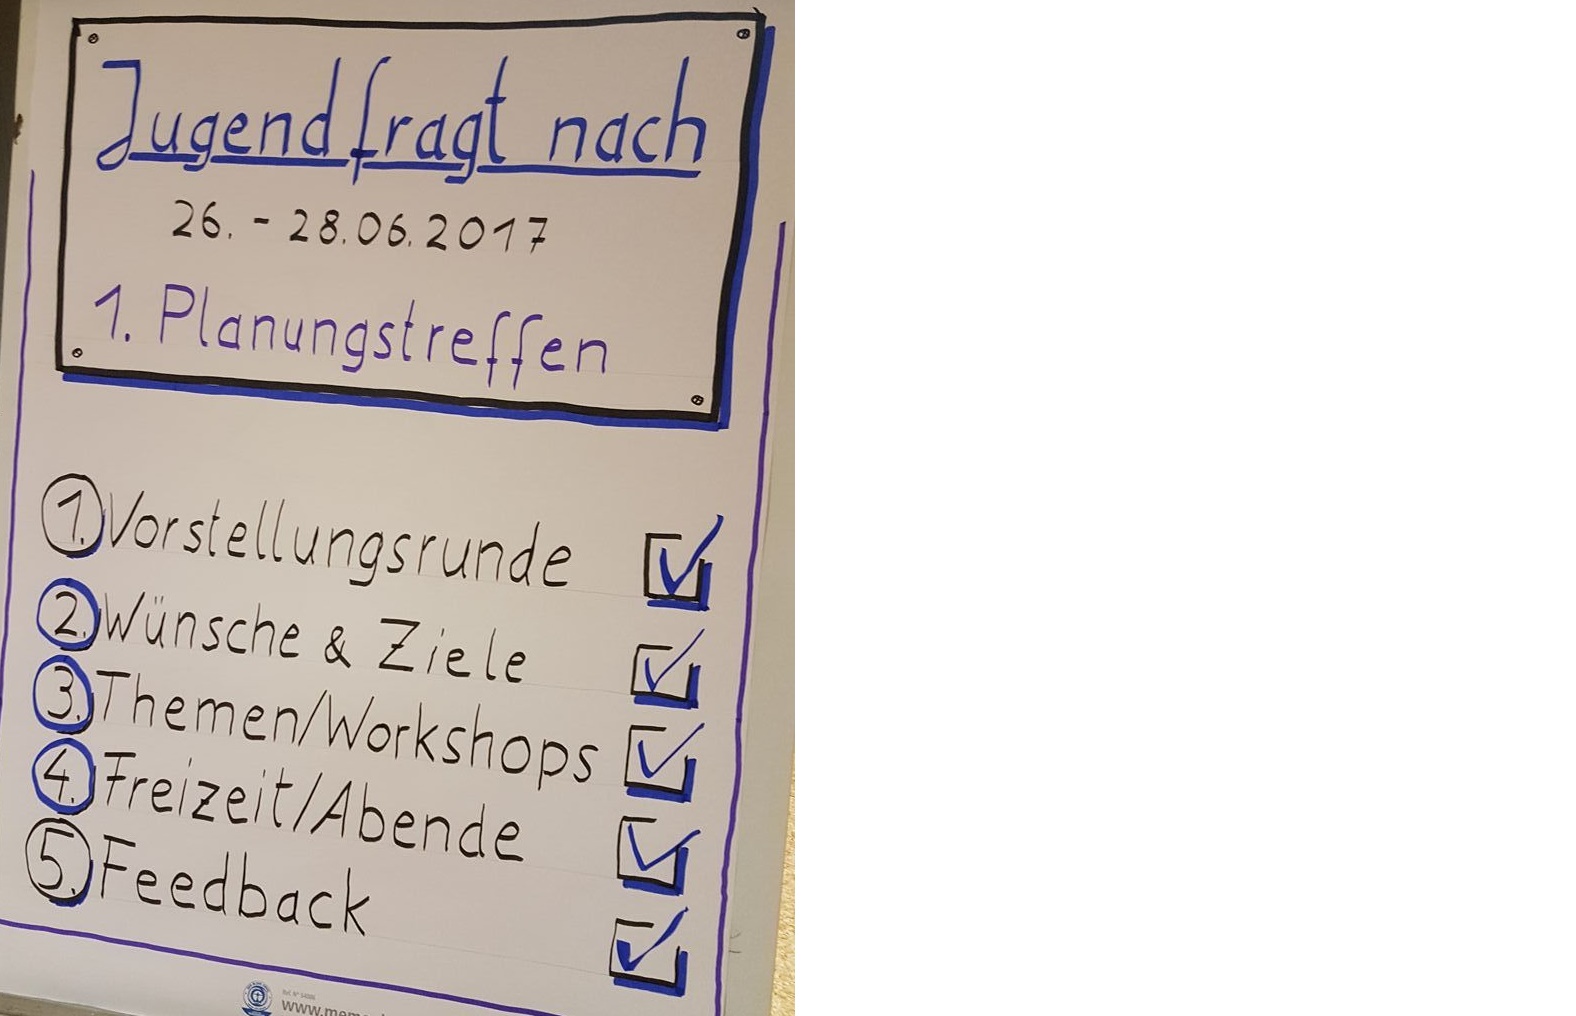 Jugend fragt nach
26. - 28.06.2017
1. Planungstreffen
1. Vorstellungsrunde
2. Wünsche & Ziele
3. Themen/Workshops
4. Freizeit/Abende
5. Feedback